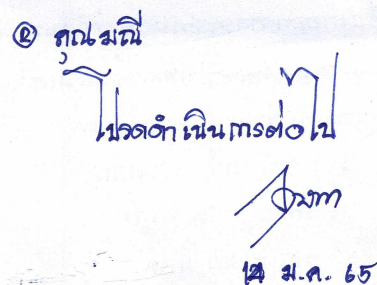 ② คุณมณี
โปรดดำเนินการต่อไป
14 ม.ค. 65